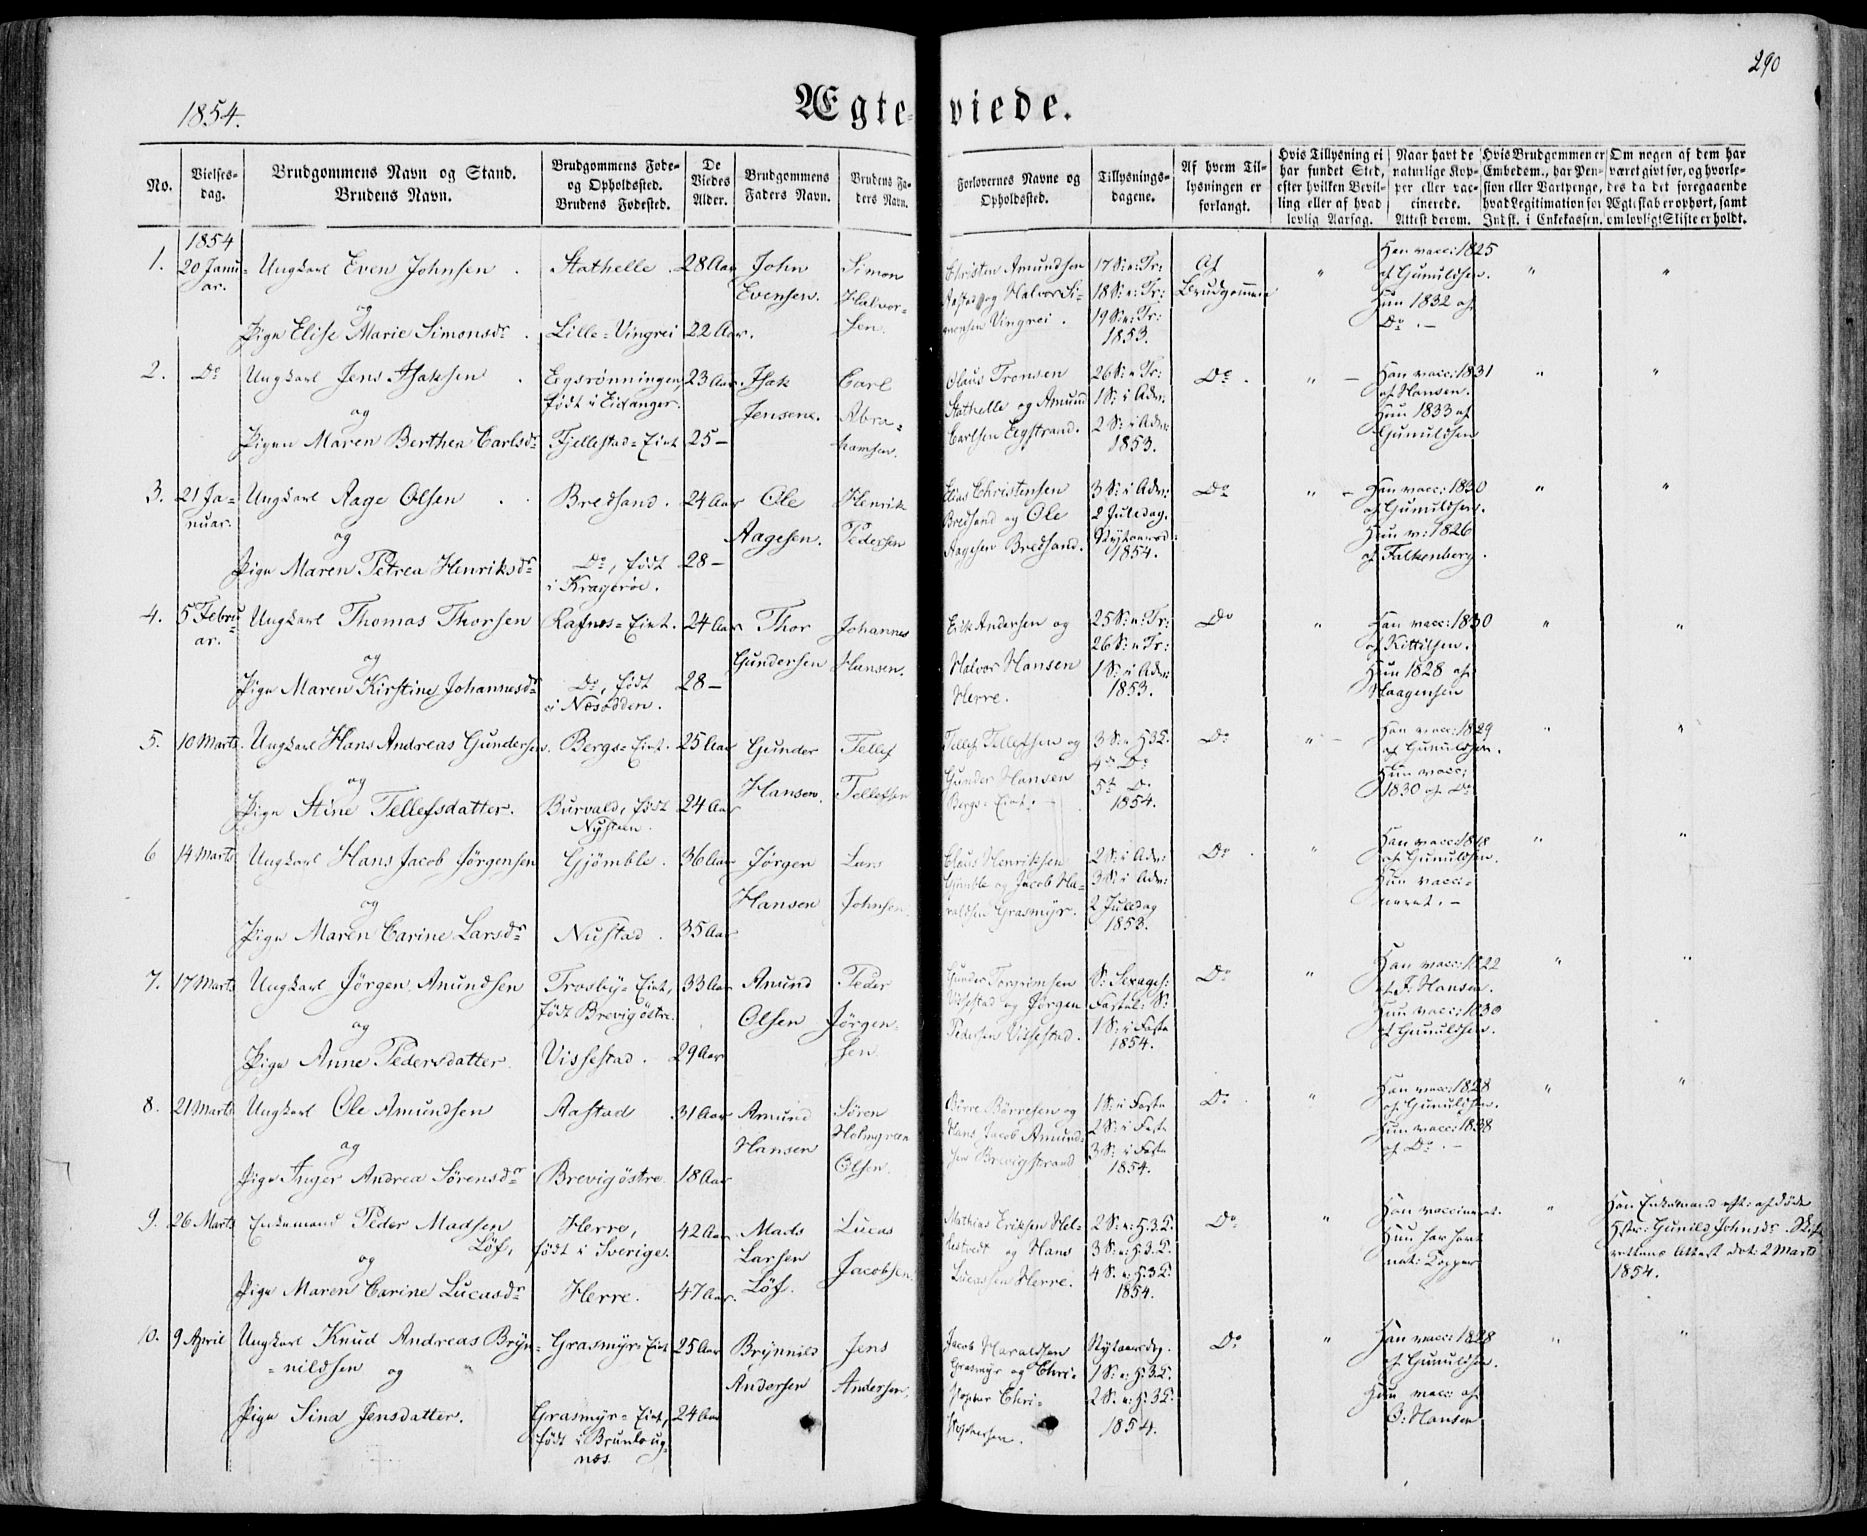 290
1854.
Ægte-viede.
No.
Vielses-
dag.
Brudgommens Navn og Stand.
Brudens Navn.
Brudgommens Føde-
og Opholdssted.
Brudens Fødested.
De
Viedes
Alder.
Brudgommens
Faders Navn.
Brudens Fa-
ders Navn.
Forlovernes Navne og
Opholdssted.
Tillysnings-
dagene.
Af hvem Til-
lysningen er
forlangt.
Hvis Tillysning ei
har fundet Sted,
efter hvilken Bevil-
ling eller af hvad
lovlig Aarsag.
Naar havt de
naturlige Kop-
per eller vac-
cinerede.
Attest derom.
Hvis Brudgommen er
Embedsm., har Pen-
sion eller Vartpenge,
hvad Legitimation for
Indsk. i Enkekassen.
Om nogen af dem har
været givt før, og hvorle-
des da det foregaaende
Ægteskab er ophørt, samt
om lovligt Skifte er holdt.
1854
1.
20 Janu-
ar.
Ungkarl Even Johnsen
og
Pige Elise Marie Simonsdr
Stathelle
Lille-Vingrei
28 Aar
22 Aar.
John
Evensen.
Simon
Halvor-
sen.
Christen Amundsen
og Halvor Si-
monsen Vingrei.
17 S: e: Tr:
18 S: e: Tr:
19 S: e: Tr:
1853.
Af
Brudgommen
"
Han vacc: 1825
af Gunuldsen.
Hun 1832 af
Do. -
"
"
2.
Do
Ungkarl Jens Isaksen
og
Pigen Maren Berthea Carlsdr
Eegsrønningen,
født i Eidanger.
Fjellestad-Eiet
23 Aar.
25 -
Isak
Jensen.
Carl
Abra-
hamsen.
Olaus Tronsen
Stathelle og Amund
Carlsen Eegstrand.
26 S: e Tr:
1 S: i Adv:
2 S: i Adv:
1853.
Do.
" -
Han vacc: 1831
af Hansen.
Hun 1833 af
Gunuldsen
"
"
3.
21 Ja-
nuar.
Ungkarl Aage Olsen
og
Pige Maren Petrea Henriksdr
Bredsand.
Do, født
i Kragerøe.
24 Aar
28 -
Ole
Aagesen.
Henrik
Pedersen
Elias Christensen
Bredsand og Ole
Aagesen Bredsand.
3 S: i Adv:
2 Juledag.
Nytaarsd:
1854.
Do
" -
Han vacc: 1830
af Gunuldsen.
Hun v: 1826
af Falkenberg.
"
"
4.
5 Febru-
ar.
Ungkarl Thomas Thorsen
og
Pige Maren Kirstine Johannesdr
Rafnes-Eiet.
Do, født
i Næsodden.
24 Aar
28 -
Thor
Gundersen
Johannes
Hansen.
Erik Andersen og
Halvor Hansen
Herre.
25 S: e: Tr:
26 S: e Tr:
1 S: i Adv:
1853.
Do
"
Han vacc: 1830
af Kittilsen.
Hun 1828 af
Haagensen
"
"
5.
10 Marts.
Ungkarl Hans Andreas Gundersen.
og
Pige Stine Tellefsdatter.
Bergs-Eiet.
Burvald, født
25 Aar
24 Aar
Gunder
Hansen.
Tellef
Tellefsen
Tellef Tellefsen og
Gunder Hansen
Bergs-Eiet. -
3 S: e H3K.
4de Do
5te Do
1854.
Do
" -
Han vacc: 1829
af Gunuldsen.
Hun vacc:
1830 af Do
"
"
6
14 Marts
Ungkarl Hans Jacob Jørgensen
og
Pige Maren Carine Larsdr
Gjømble.
Nustad.
36 Aar
35 Aar
Jørgen
Hansen
Lars
Johnsen.
Claus Henriksen
Gjømble og Jacob Ha-
raldsen Grasmyr.
2 S: i Adv:
3 S: i Adv:
2 Juledag
1853.
Do.
"
Han vacc: 1818
af Gunuldsen.
Hun vacci-
neret. -
"
"
7.
17 Marts
Ungkarl Jørgen Amundsen
og
Pige Anne Pedersdatter.
Trosby-Eiet,
født Brevigøstre.
Vissestad.
33 Aar
29 Aar
Amund
Olsen
Peder
Jørgen-
sen
Gunder
Vissestad og Jørgen
Pedersen Vissestad.
S: Sexages:
Fastel: S:
1 S: i Faste
1854.
Do
"
Han vacc: 1822
af J. Hansen.
Hun vacc: 1830
af Gunuldsen.
"
"
8.
21 Marts
Ungkarl Ole Amundsen
og
Pige Inger Andrea Sørensdr
Aastad
Brevigøstre.
31 Aar
18 Aar
Amund
Hansen
Søren
Holmgreen
Olsen.
Børre Børresen og
Hans Jacob Amund-
sen Brevigstrand
1 S: i Faste
2 S: i Faste
3 S: i Faste
1854.
Do.
"
Han vacc: 1828
af Gunuldsen.
Hun vacc: 1838
af Do. -
"
"
9.
26 Marts
Enkemand Peder Madsen
Løf,
og
Pige Maren Carine Lucasdr
Herre,
født i Sverige.
Herre.
42 Aar
47 Aar.
Mads
Larsen
Løf.
Lucas
Jacobsen.
Mathias Eriksen Hel-
lestvedt og Hans
Lucassen Herre.
2 S: e: H: 3. K.
3 S: e: H: 3. K.
4 S: e: H: 3 K:
1854.
Do.
"
Han vaccineret.
Hun har havt
nat: Kopper
"
Han Enkemand eft: afdøde
Hstr: Gunild Johnsdr. Skifte-
rettens Attest dat: 2 Marts
1854.
10.
9 April
Ungkarl Knud Andreas Bryn-
nildsen og
Pige Sina Jensdatter.
Grasmyr-Eiet
Grasmyr-Eiet,
født i Brunlaug-
næs.
25 Aar
24 Aar
Brynnild
Andersen
Jens
Andersen.
Jacob Haraldsen
Grasmyr og Chri-
stopher Chri-
stophersen.
Nytaarsdag.
1 S: e: H: 3 K.
2 S. e: H: 3 K.
1854.
Do
"
Han vacc: 1828
af Gunuldsen.
Hun vacc: af
O: Hansen
"
"